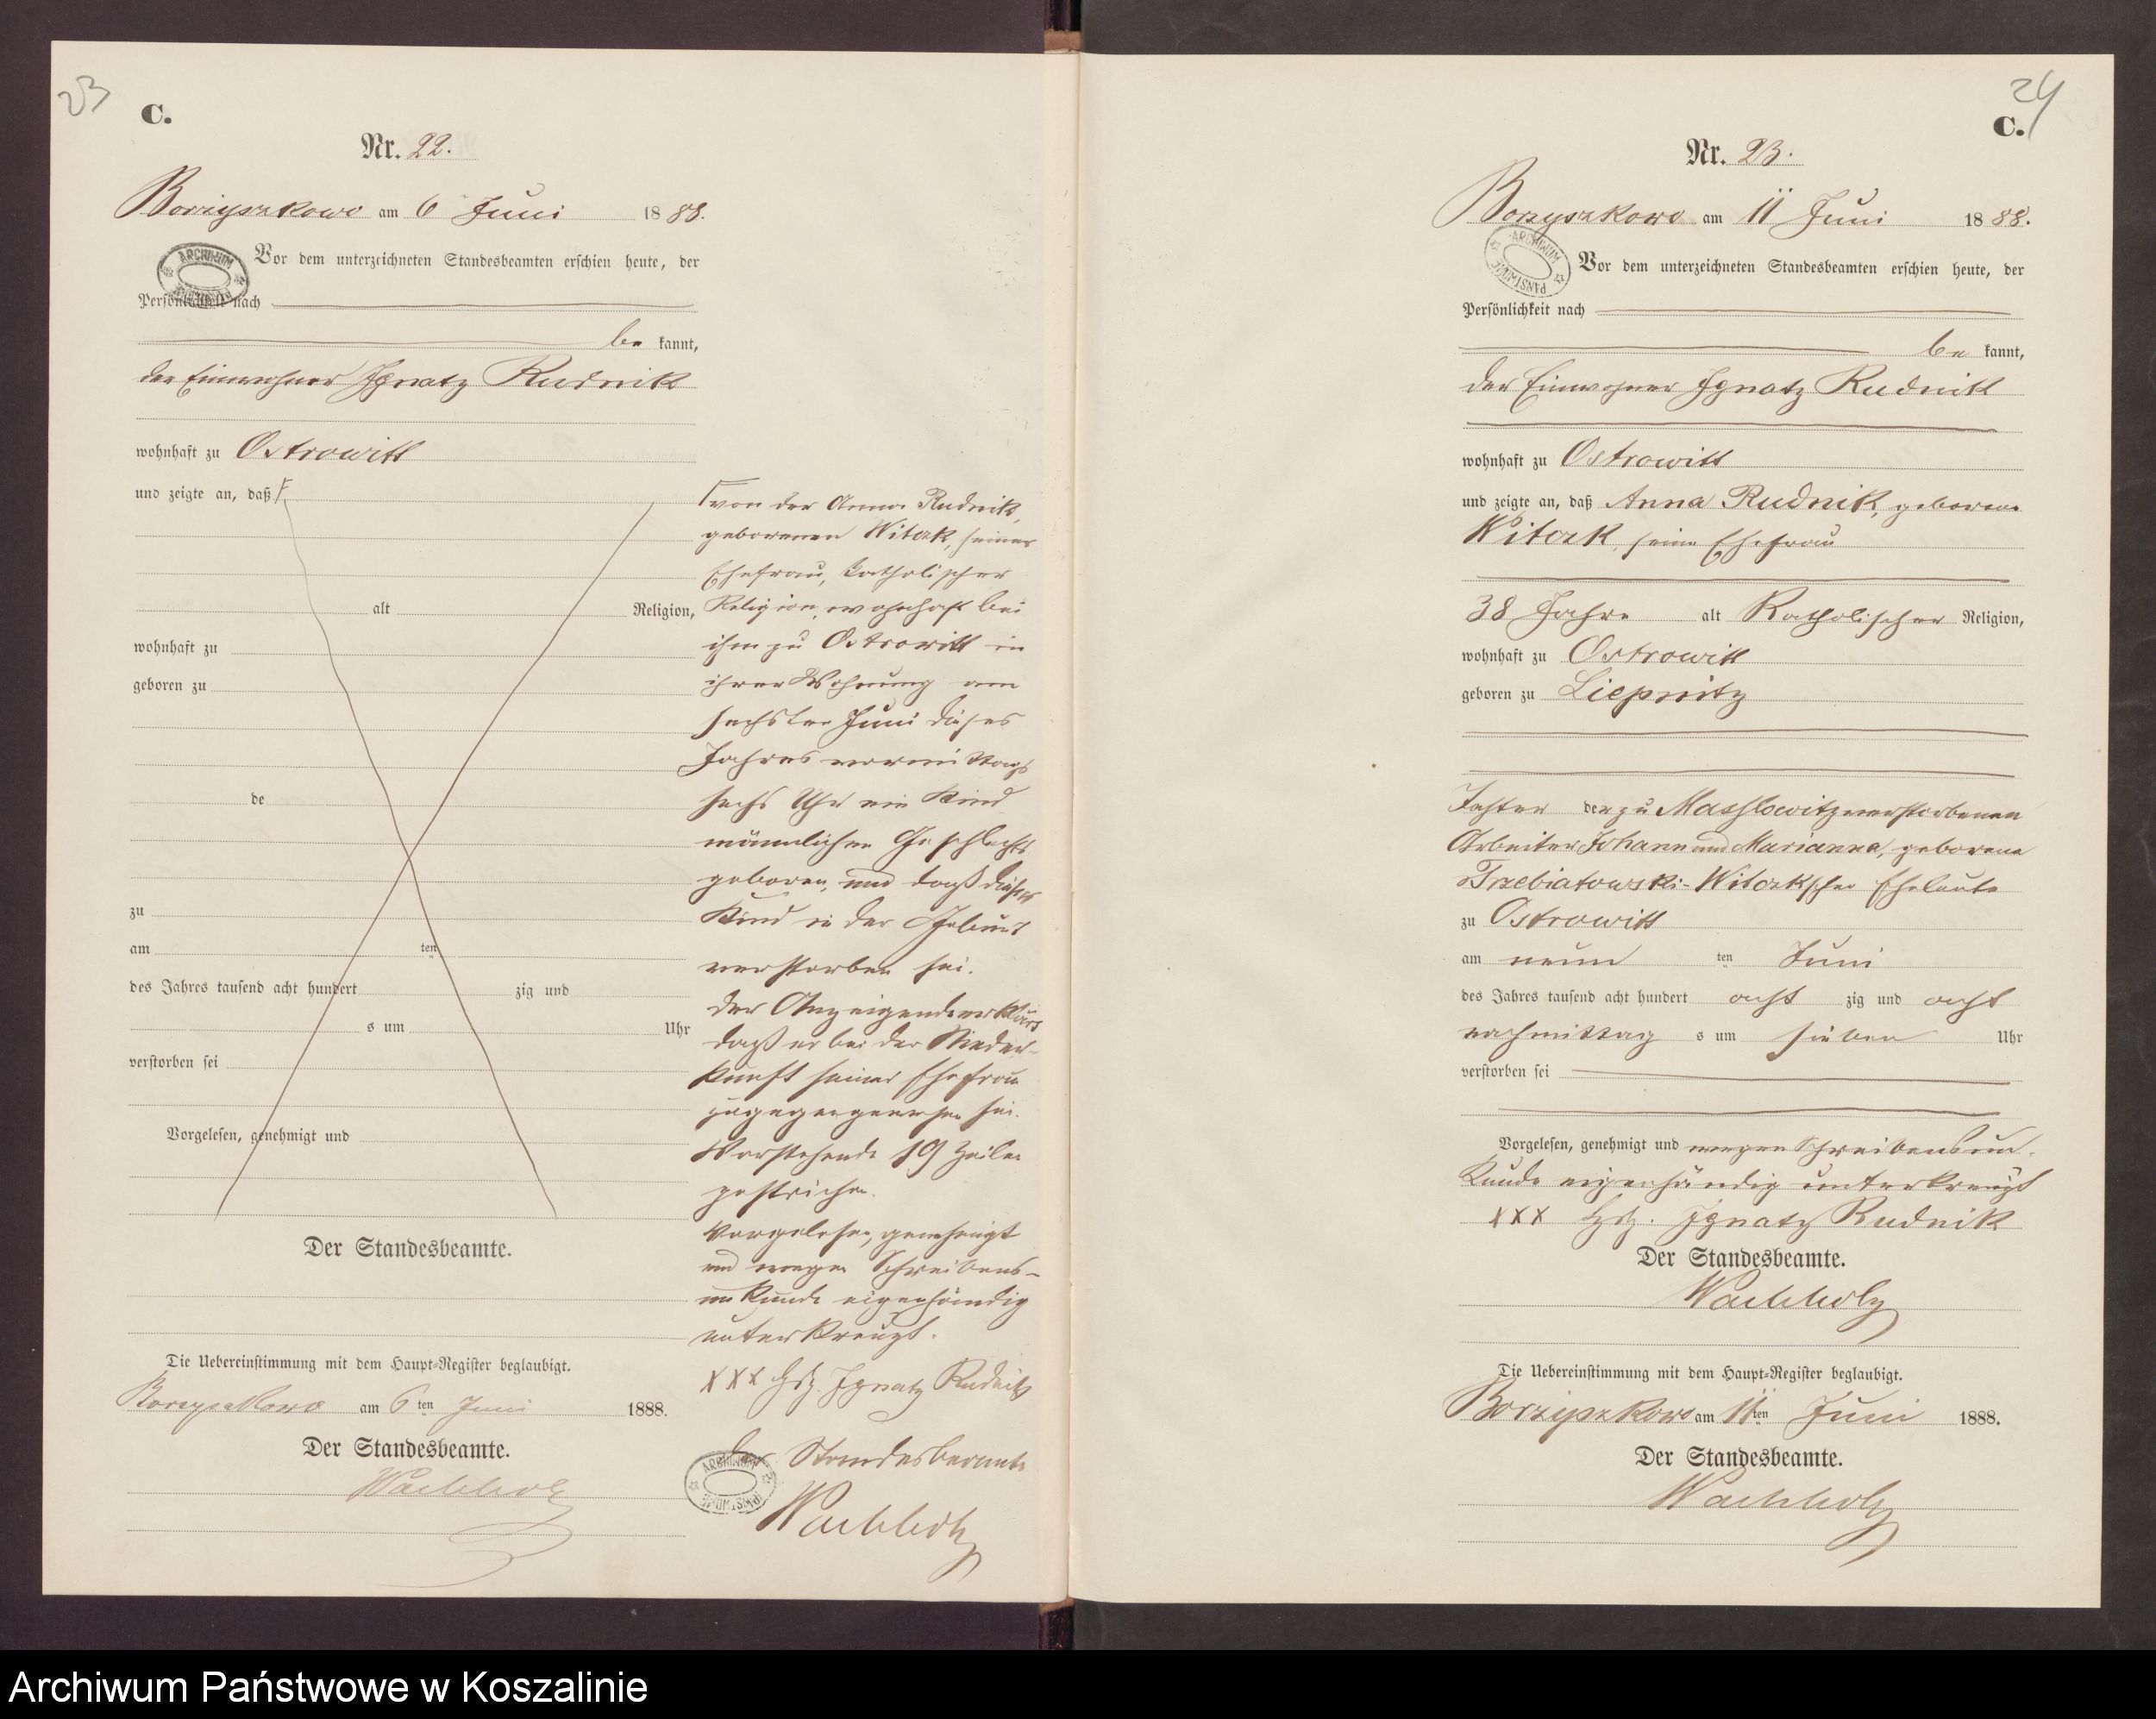 23
C.
Nr. 22.
Borzyszkowo am 6 Juni 1888.
Vor dem unterzeichneten Standesbeamten erschien heute, der
Persönlichkeit nach
be kannt,
der Einwohner Ignatz Rudnik
wohnhaft zu Ostrowitt
und zeigte an, daß
alt Religion,
wohnhaft zu
geboren zu
de
zu
am ten
des Jahres tausend acht hundert zig und
s um Uhr
verstorben sei
Vorgelesen, genehmigt und
Der Standesbeamte.
Die Uebereinstimmung mit dem Haupt-Register beglaubigt.
Borzyszkowo am 6 ten Juni 1888.
Der Standesbeamte.
Wachholz
von der Anna Rudnik,
geborenen Witczk, seiner
Ehefrau, katholischer
Religion, wohnhaft bei
ihm zu Ostrowitt in
ihrer Wohnung am
sechsten Juni dieses
Jahres vormittags
sechs Uhr ein Kind
männlichen Geschlechts
geboren, und daß dieses
Kind in der Geburt
verstorben sei.
Der Anzeigende erklärt
daß er bei der Nieder-
kunft seiner Ehefrau
zugegen gewesen sei.
Vorstehende 19 Zeilen
gestrichen.
Vorgelesen, genehmigt
und wegen Schreibens-
unkunde eigenhändig
unterkreuzt.
XXX Hdz. Ignatz Rudnik
Der Standesbeamte
Wachholz
ARCHIWUM PAŃSTWOWE
24
C.
Nr. 23.
Borzyszkowo am 11 Juni 1888.
ARCHIWUM PAŃSTWOWE
Vor dem unterzeichneten Standesbeamten erschien heute, der
Persönlichkeit nach
be kannt,
der Einwohner Ignatz Rudnik
wohnhaft zu Ostrowitt
und zeigte an, daß Anna Rudnik, geborene
Witczk, seine Ehefrau
38 Jahre alt Katholischer Religion,
wohnhaft zu Ostrowitt
geboren zu Liepnitz
Tochter der zu Masslowitz verstorbenen
Arbeiter Johann und Marianna, geborene
Trzebiatowski-Witczkschen Eheleute
zu Ostrowitt
am neun ten Juni
des Jahres tausend acht hundert acht zig und acht
nachmittag s um sieben Uhr
verstorben sei
Vorgelesen, genehmigt und wegen Schreibensun-
kunde eigenhändig unterkreuzt
XXX Hdz. Ignatz Rudnik
Der Standesbeamte.
Wachholz
Die Uebereinstimmung mit dem Haupt-Register beglaubigt.
Borzyszkowo am 11 ten Juni 1888.
Der Standesbeamte.
Wachholz
Archiwum Państwowe w Koszalinie